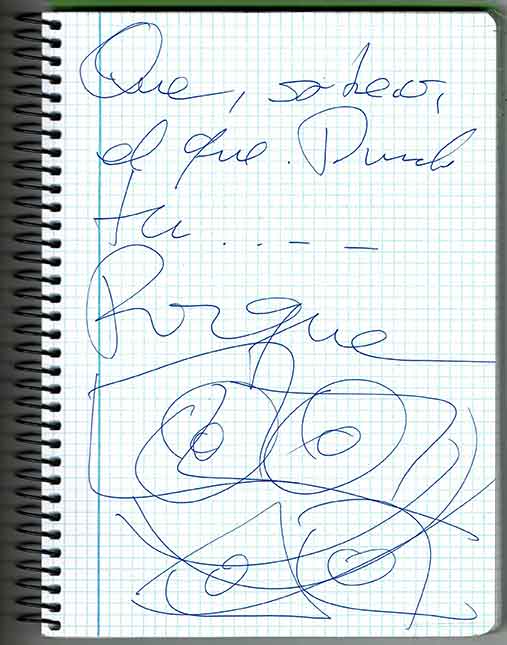 Que, sabeas,
el que. Puede
tu . . . – –
Porque